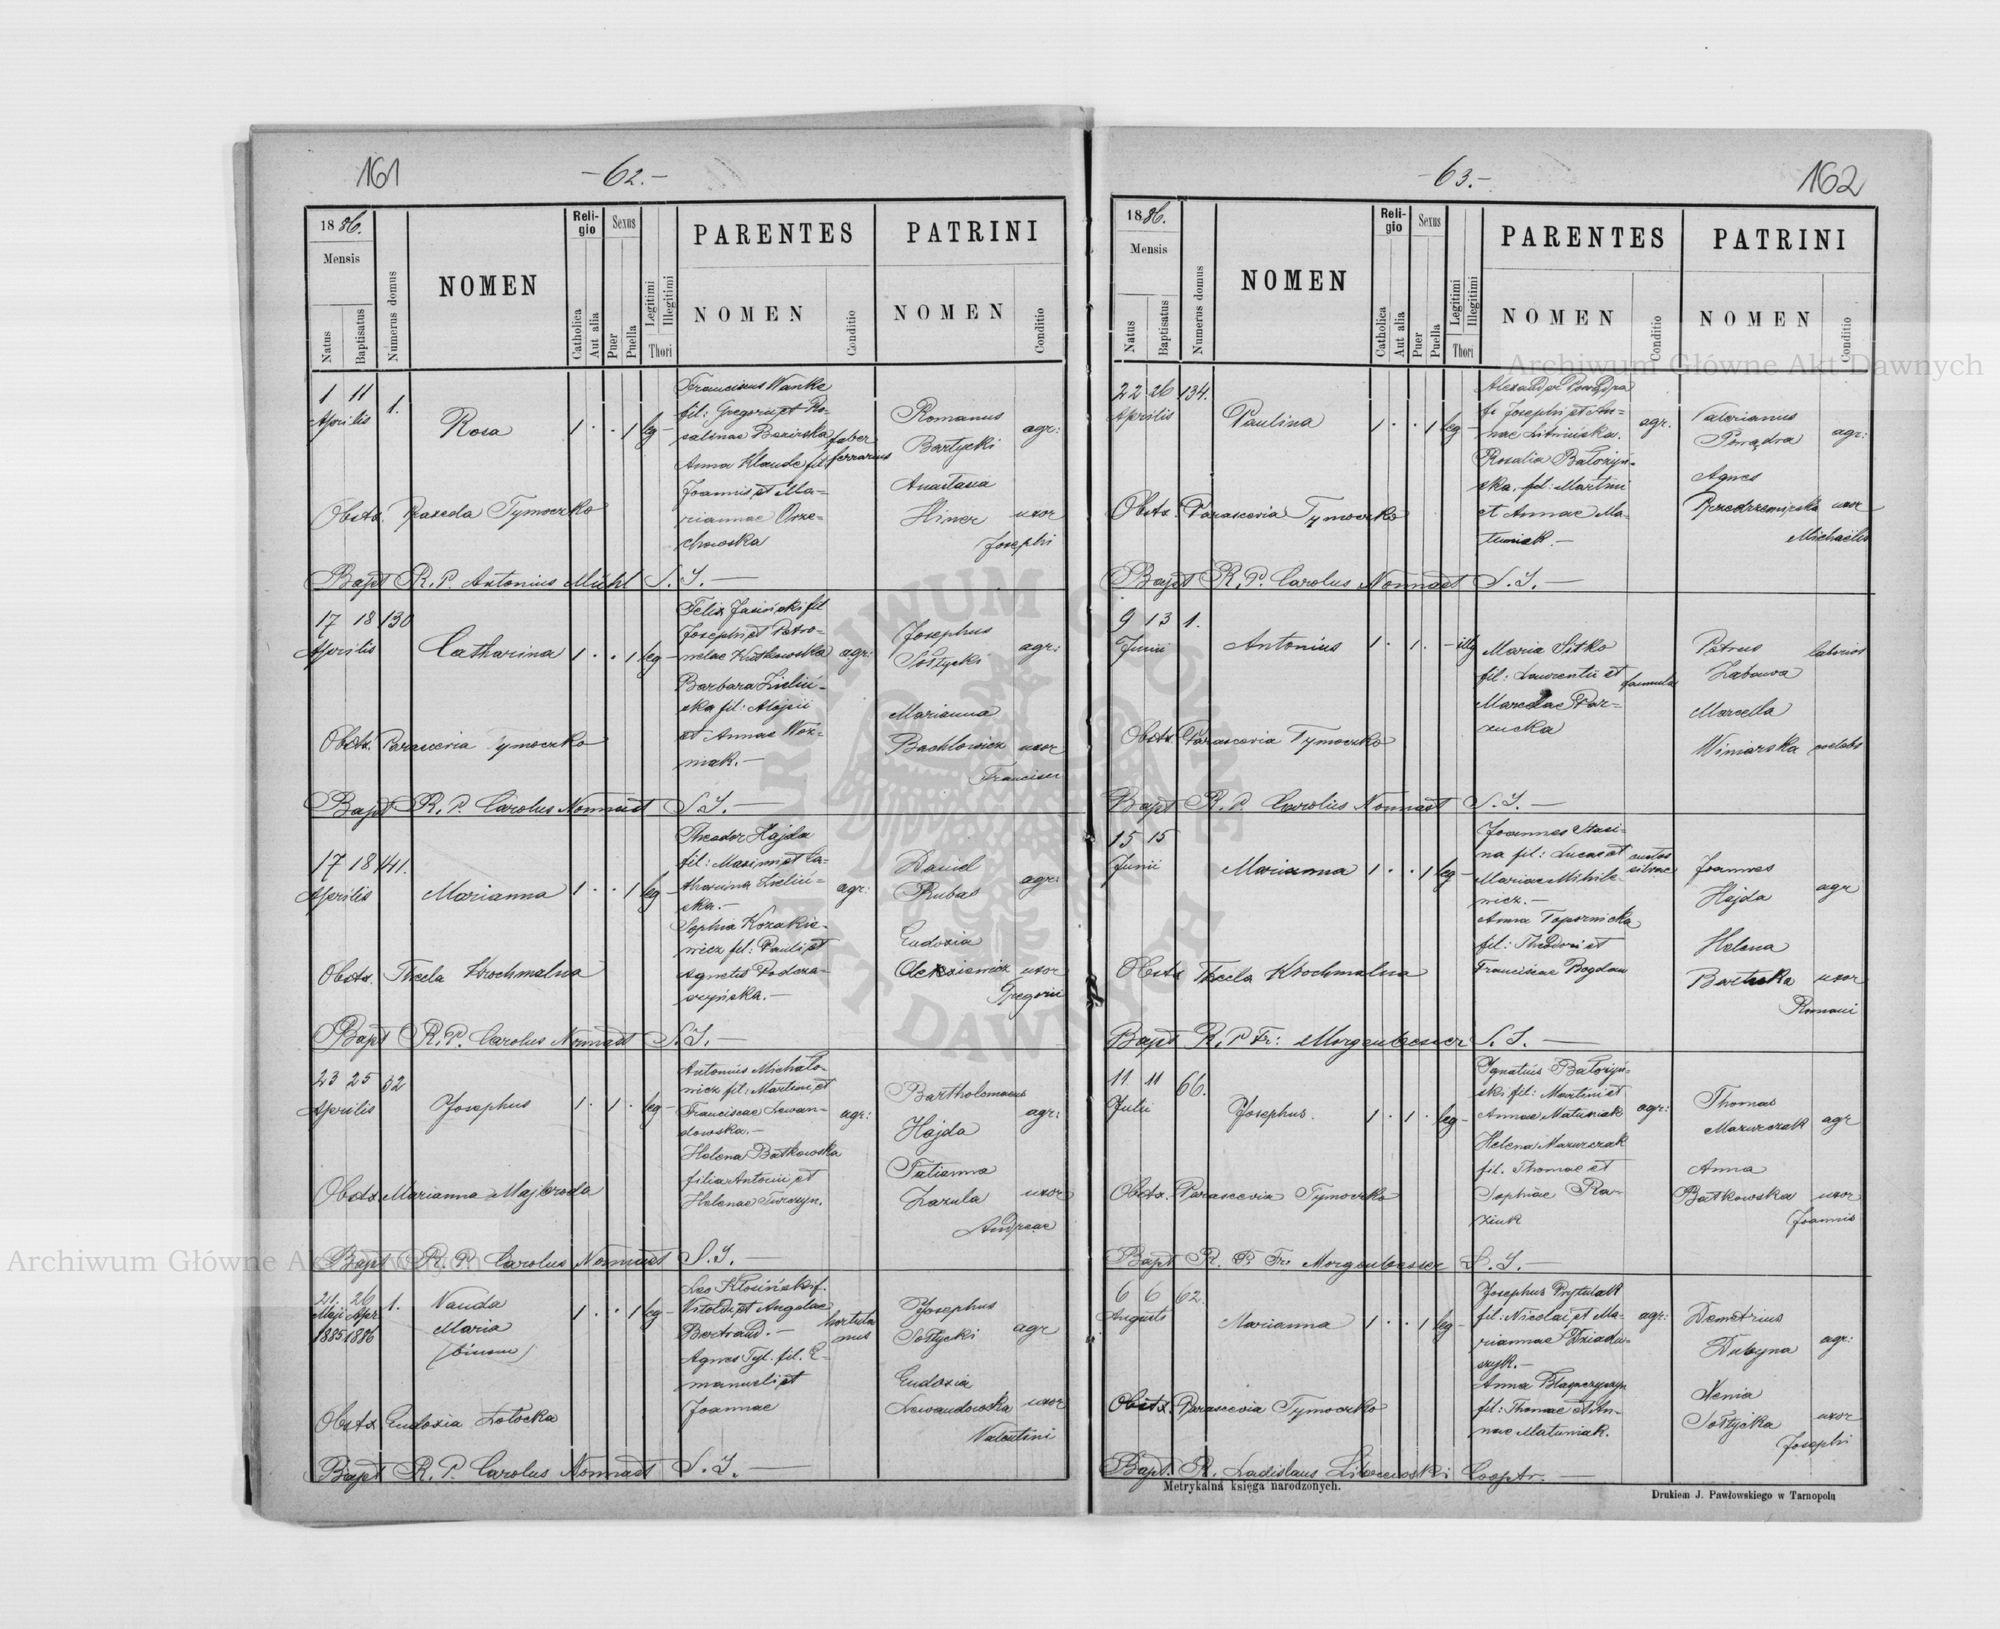 161
-62.-
1886.
Mensis
Natus
Baptisatus
Numerus domus
NOMEN
Religio
Catholica
Aut alia
Sexus
Puer
Puella
Legitimi
Illegitimi
Thori
PARENTES
NOMEN
Conditio
PATRINI
NOMEN
Conditio
1 11
Aprilis
1.
Rosa
1 . . 1 leg -
Franciscus Wanke
fil: Gregorii et Ro-
salinae Bezirska
Anna Klaude fil
Joannis et Ma-
riannae Orze-
chowska
faber
ferrarius
Romanus
Bartycki
agr:
Anastasia
Hiner uxor
Josephi
Obstx. Praxeda Tymoczko
Bapt R. P. Antonius Mühl S. J. —
17 18 130
Aprilis
Catharina
1 . . 1 leg -
Felix Jasiński fil
Josephi et Petro-
nelae Kutkowska
Barbara Zieliń-
ska fil: Alojsii
et Annae Woz-
niak. -
agr:
Josephus
Sołtycki
agr:
Marianna
Bachlowicz uxor
Francisci
Obstx. Parascevia Tymoczko
Bapt R. P. Carolus Nonnast S. J. —
17 18 141.
Aprilis
Marianna
1 . . 1 leg -
Theodor Hajda
fil: Maximi et Ca-
tharina Zieliń-
ska. -
Sophia Kozakie-
wicz fil: Pauli et
Agnetis Podcza-
szyńska. -
agr:
Daniel
Rubas
agr:
Eudoxia
Oleksiewicz uxor
Gregorii
Obstx. Thecla Krochmalna
Bapt R. P. Carolus Nonnast S. J. —
23 25 32
Aprilis
Josephus
1 . 1 . leg -
Antonius Michalo-
wicz fil: Martini et
Franciscae Lewan-
dowska. -
Helena Bałkowska
filia Antonii et
Helenae Turczyn.
agr:
Bartholomaeus
Hajda
agr:
Tatianna
Zazula uxor
Andreae
Obstx. Marianna Majkroda
Bapt R. P. Carolus Nonnast S. J. —
21. 26
Maji Apr
1885 1886
1.
Vanda
Maria
(binom)
1 . . 1 leg -
Leo Kłosiński f.
Vitoldi et Angelae
Bertrand. -
Agnes Tyl. fil. E-
manueli et
Joannae
hortula
nus
Josephus
Sołtycki
agr
Eudoxia
Lewandowska uxor
Valentini
Obstx Eudoxia Łotocka
Bapt R. P. Carolus Nonnast S. J. —
-63.-
162
1886.
Mensis
Natus
Baptisatus
Numerus domus
NOMEN
Religio
Catholica
Aut alia
Sexus
Puer
Puella
Legitimi
Illegitimi
Thori
PARENTES
NOMEN
Conditio
PATRINI
NOMEN
Conditio
22 26 134.
Aprilis
Paulina
1 . . 1 leg -
Alexander Powądra
f. Josephi et An-
nae Litwińska.
Rosalia Bałożyń-
ska. fil: Martini
et Annae Ma-
tuniak. -
agr.
Valerianus
Powądra
agr:
Agnes
Przedrzemirska uxor
Michaelis
Obstx. Parascevia Tymoczko
Bapt R. P. Carolus Nonnast S. J. —
9 13 1.
Junii
Antonius
1 . 1 . - illg
Maria Sitko
fil: Laurentii et
Marcelae Par-
zucka
famula
Petrus
Zabawa
laborios
Marcella
Winiarska coelebs
Obstx. Parascevia Tymoczko
Bapt R. P. Carolus Nonnast S. J. —
15 15
Junii
Marianna
1 . . 1 leg -
Joannes Stasi-
na fil: Lucae et
Mariae Mihile-
wicz. -
Anna Topornicka
fil: Theodori et
Franciscae Bogdan
custos
silvae
Joannes
Hajda
agr
Helena
Bartecka uxor
Romani
Obstx Thecla Krochmalna
Bapt R. P. Fr: Morgenbesser S. J. —
11 11 66.
Julii
Josephus.
1 . 1 . leg -
Ignatius Bałożyń-
ski fil: Martini et
Annae Matuniak
Helena Mazurczak
fil. Thomae et
Sophiae Ra-
ziuk
agr:
Thomas
Mazurczak agr
Anna
Bałkowska uxor
Joannis
Obstx. Parascevia Tymoczko
Bapt R. P. Fr. Morgenbesser S. J. —
6 6 62.
Augusti
Marianna
1 . . 1 leg -
Josephus Prytulak
fil: Nicolai et Ma-
riannae Dziadu-
szyk. -
Anna Błaszczyszyn
fil: Thomae et An-
nae Matuniak.
agr:
Demetrius
Dubyna
agr:
Xenia
Sołtycka uxor
Josephi
Obstx. Parascevia Tymoczko
Bapt. R. Ladislaus Libowoski Cooptr. —
Metrykalna księga narodzonych.
Drukiem J. Pawłowskiego w Tarnopolu
Archiwum Główne Akt Dawnych
Archiwum Główne Akt Dawnych
ARCHIWUM GŁÓWNE AKT DAWNYCH